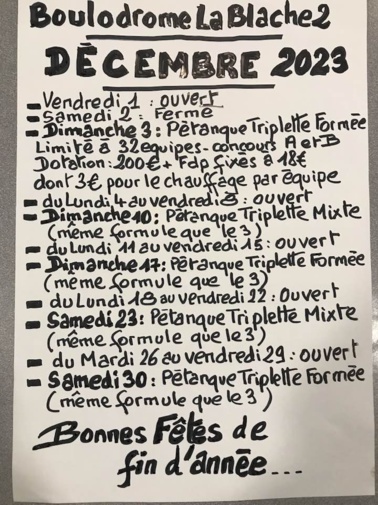 Boulodrome La Blache 2
DÉCEMBRE 2023
- Vendredi 1 : ouvert
- Samedi 2 : Fermé
- Dimanche 3 : Pétanque Triplette Formée
Limité à 32 equipes - concours A et B
Dotation : 200€ + Fdp fixés à 18€
dont 3€ pour le chauffage par équipe
- du Lundi 4 au vendredi 8 : ouvert
- Dimanche 10 : Pétanque Triplette Mixte
(même formule que le 3)
- du Lundi 11 au vendredi 15 : ouvert
- Dimanche 17 : Pétanque Triplette Formée
(même formule que le 3)
- du Lundi 18 au vendredi 22 : ouvert
- Samedi 23 : Pétanque Triplette Mixte
(même formule que le 3)
- du Mardi 26 au vendredi 29 : ouvert
- Samedi 30 : Pétanque Triplette Formée
(même formule que le 3)
Bonnes Fêtes de
fin d'année...